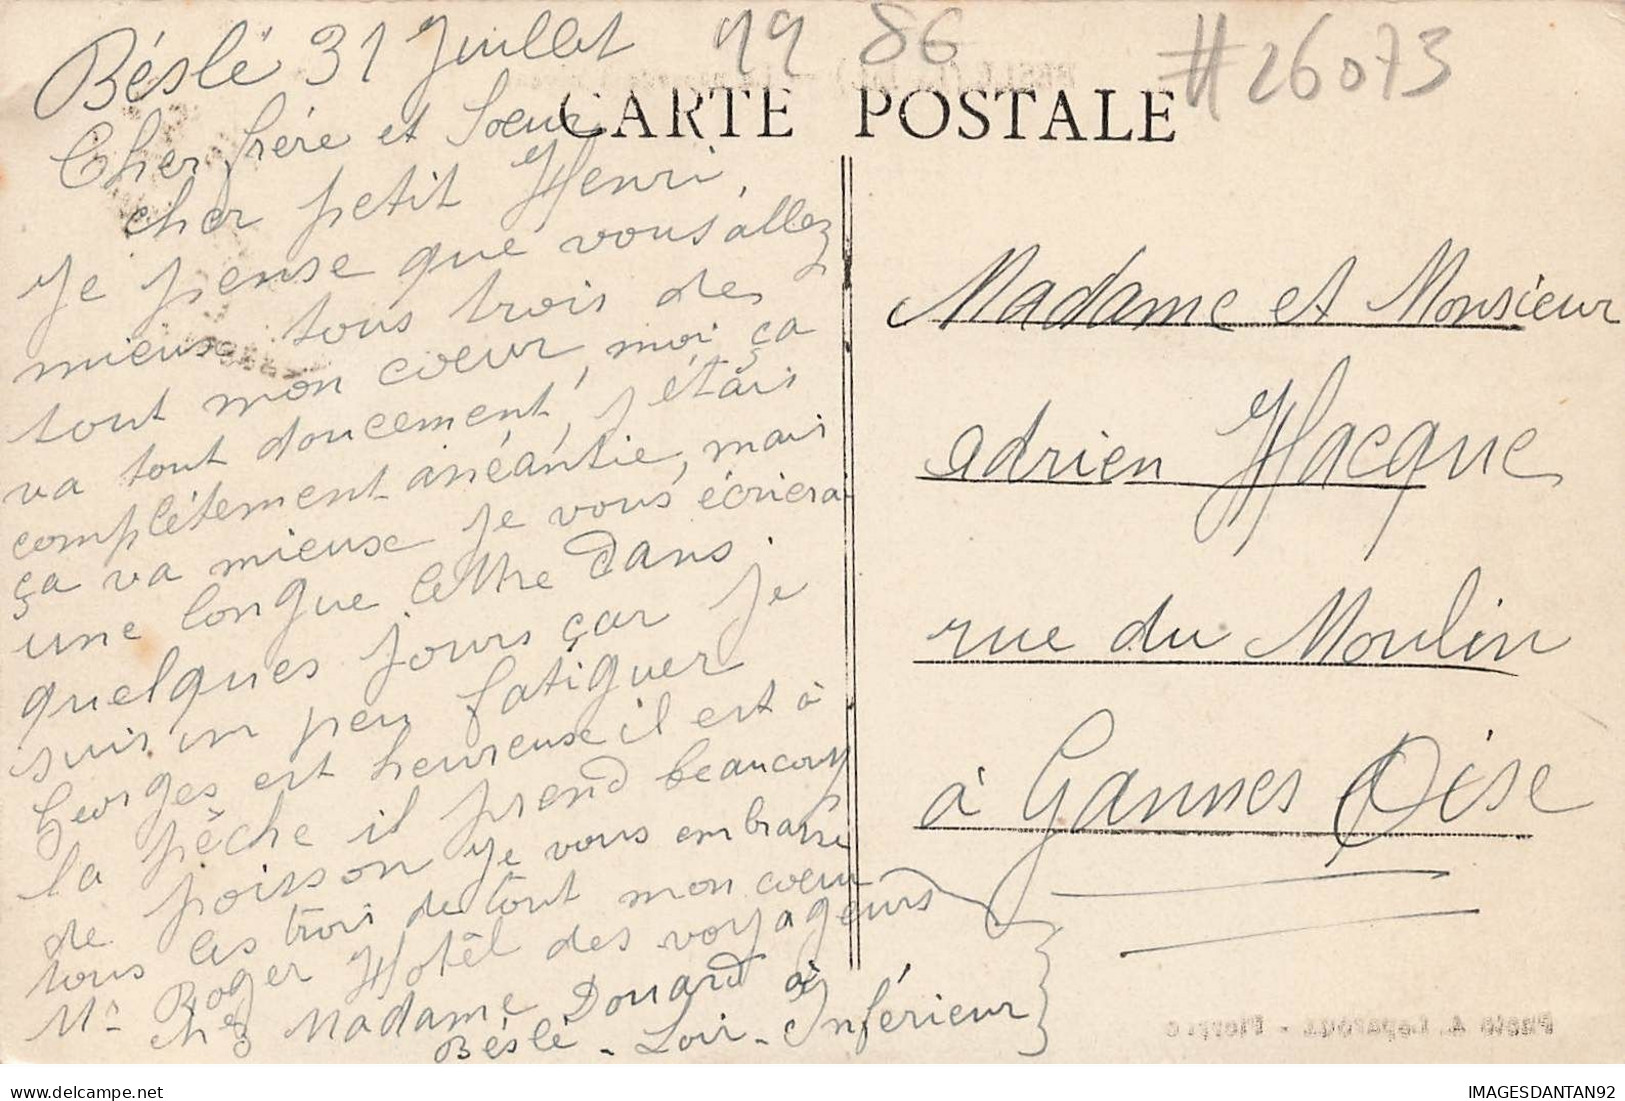 Béslé 31 Juillet 19 86 #26073
CARTE POSTALE
Cher frère et Soeur
cher petit Henri,
Je pense que vous allez
mieux tous trois de
tout mon coeur, moi ça
va tout doucement, j'étais
complètement anéantie, mais
ça va mieux je vous écriera
une longue lettre dans
quelques jours çar je
suis un peu fatiguer
Georges est heureuse il est à
la pêche il prend beaucoup
de poisson je vous embrasse
tous les trois de tout mon coeur
Mr Roger Hotêl des voyageurs
chez Madame Douard à
Béslé - Loir - Inférieur
Madame et Monsieur
adrien Hacque
rue du Moulin
à Gannes Oise
IMAGESDANTAN92